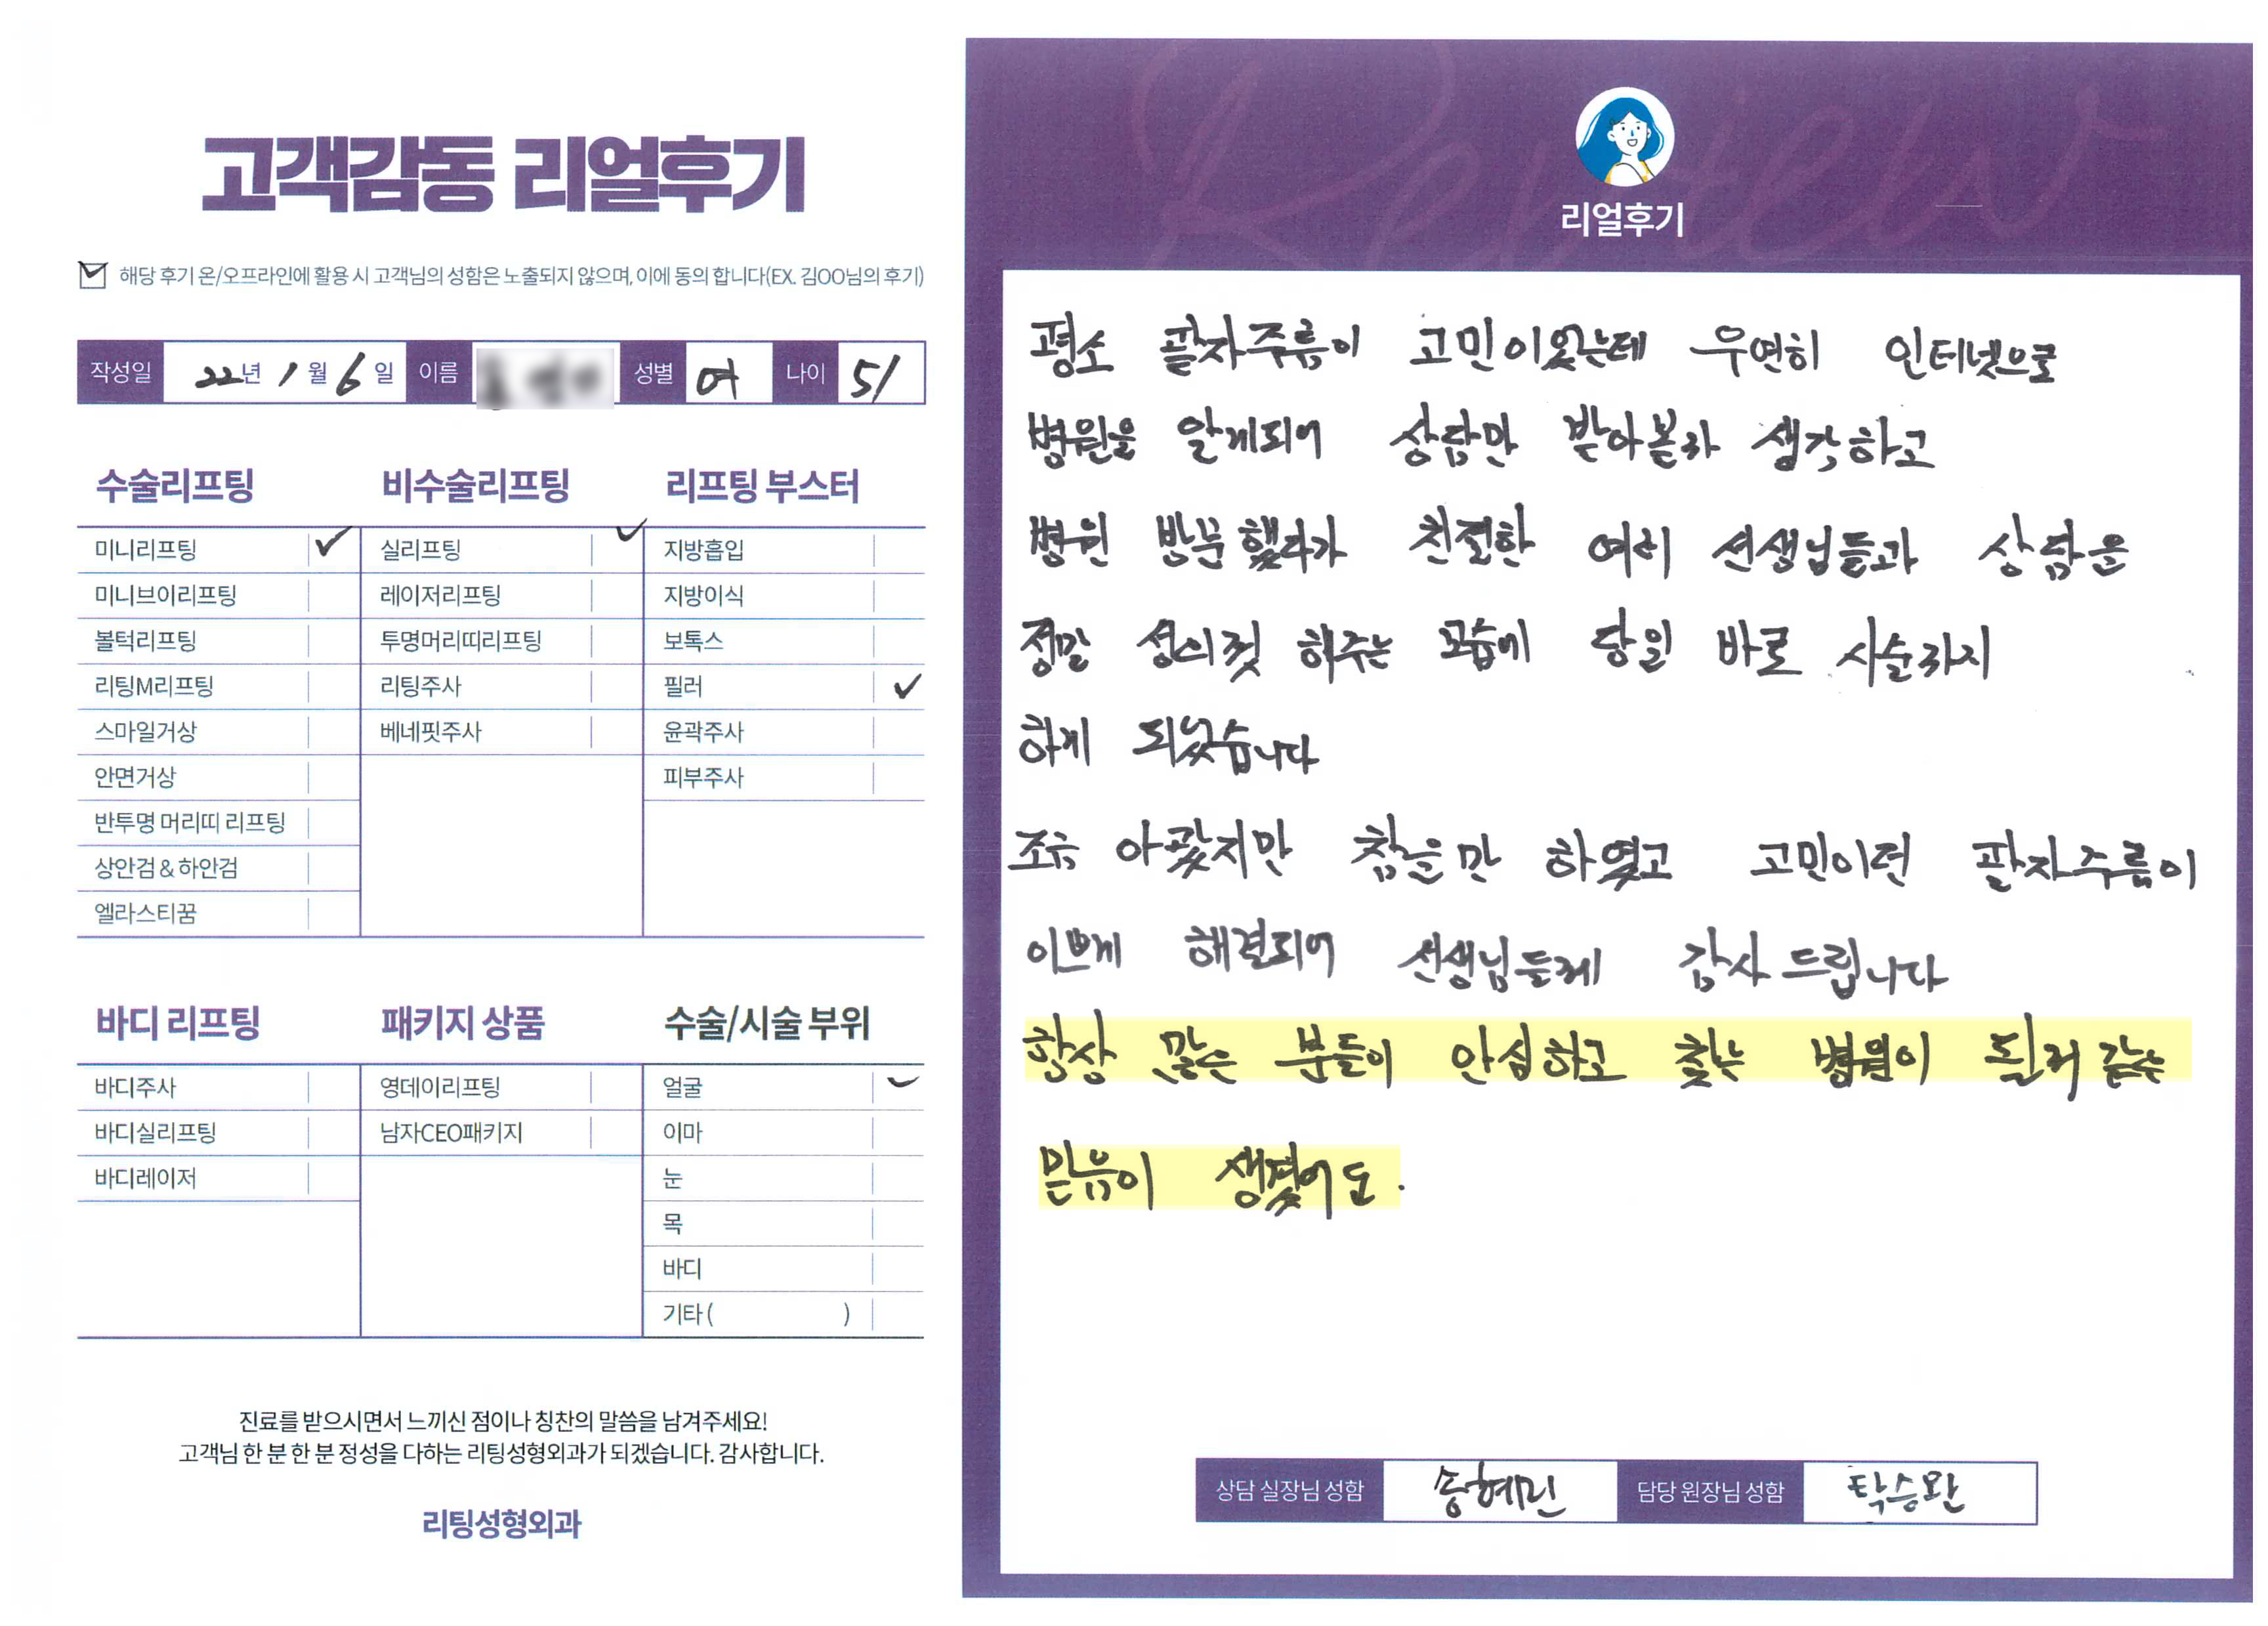 고객감동 리얼후기
해당 후기 온/오프라인에 활용 시 고객님의 성함은 노출되지 않으며, 이에 동의 합니다(EX. 김OO님의 후기)
작성일 22년 1월 6일 이름 성별 여 나이 51
수술리프팅
미니리프팅
미니브이리프팅
볼턱리프팅
리팅M리프팅
스마일거상
안면거상
반투명 머리띠 리프팅
상안검 & 하안검
엘라스티꿈
비수술리프팅
실리프팅
레이저리프팅
투명머리띠리프팅
리팅주사
베네핏주사
리프팅 부스터
지방흡입
지방이식
보톡스
필러
윤곽주사
피부주사
바디 리프팅
바디주사
바디실리프팅
바디레이저
패키지 상품
영데이리프팅
남자CEO패키지
수술/시술 부위
얼굴
이마
눈
목
바디
기타 ( )
진료를 받으시면서 느끼신 점이나 칭찬의 말씀을 남겨주세요!
고객님 한 분 한 분 정성을 다하는 리팅성형외과가 되겠습니다. 감사합니다.
리팅성형외과
Review
리얼후기
평소 팔자주름이 고민이였는데 우연히 인터넷으로
병원을 알게되어 상담만 받아볼까 생각하고
병원 방문했다가 친절한 여러 선생님들과 상담을
정말 성의껏 해주는 모습에 당일 바로 시술까지
하게 되었습니다
조금 아팠지만 참을만 하였고 고민이던 팔자주름이
이쁘게 해결되어 선생님들께 감사 드립니다
항상 많은 분들이 안심하고 찾는 병원이 될거 같은
믿음이 생겼어요.
상담 실장님 성함 송혜민 담당 원장님 성함 탁승완